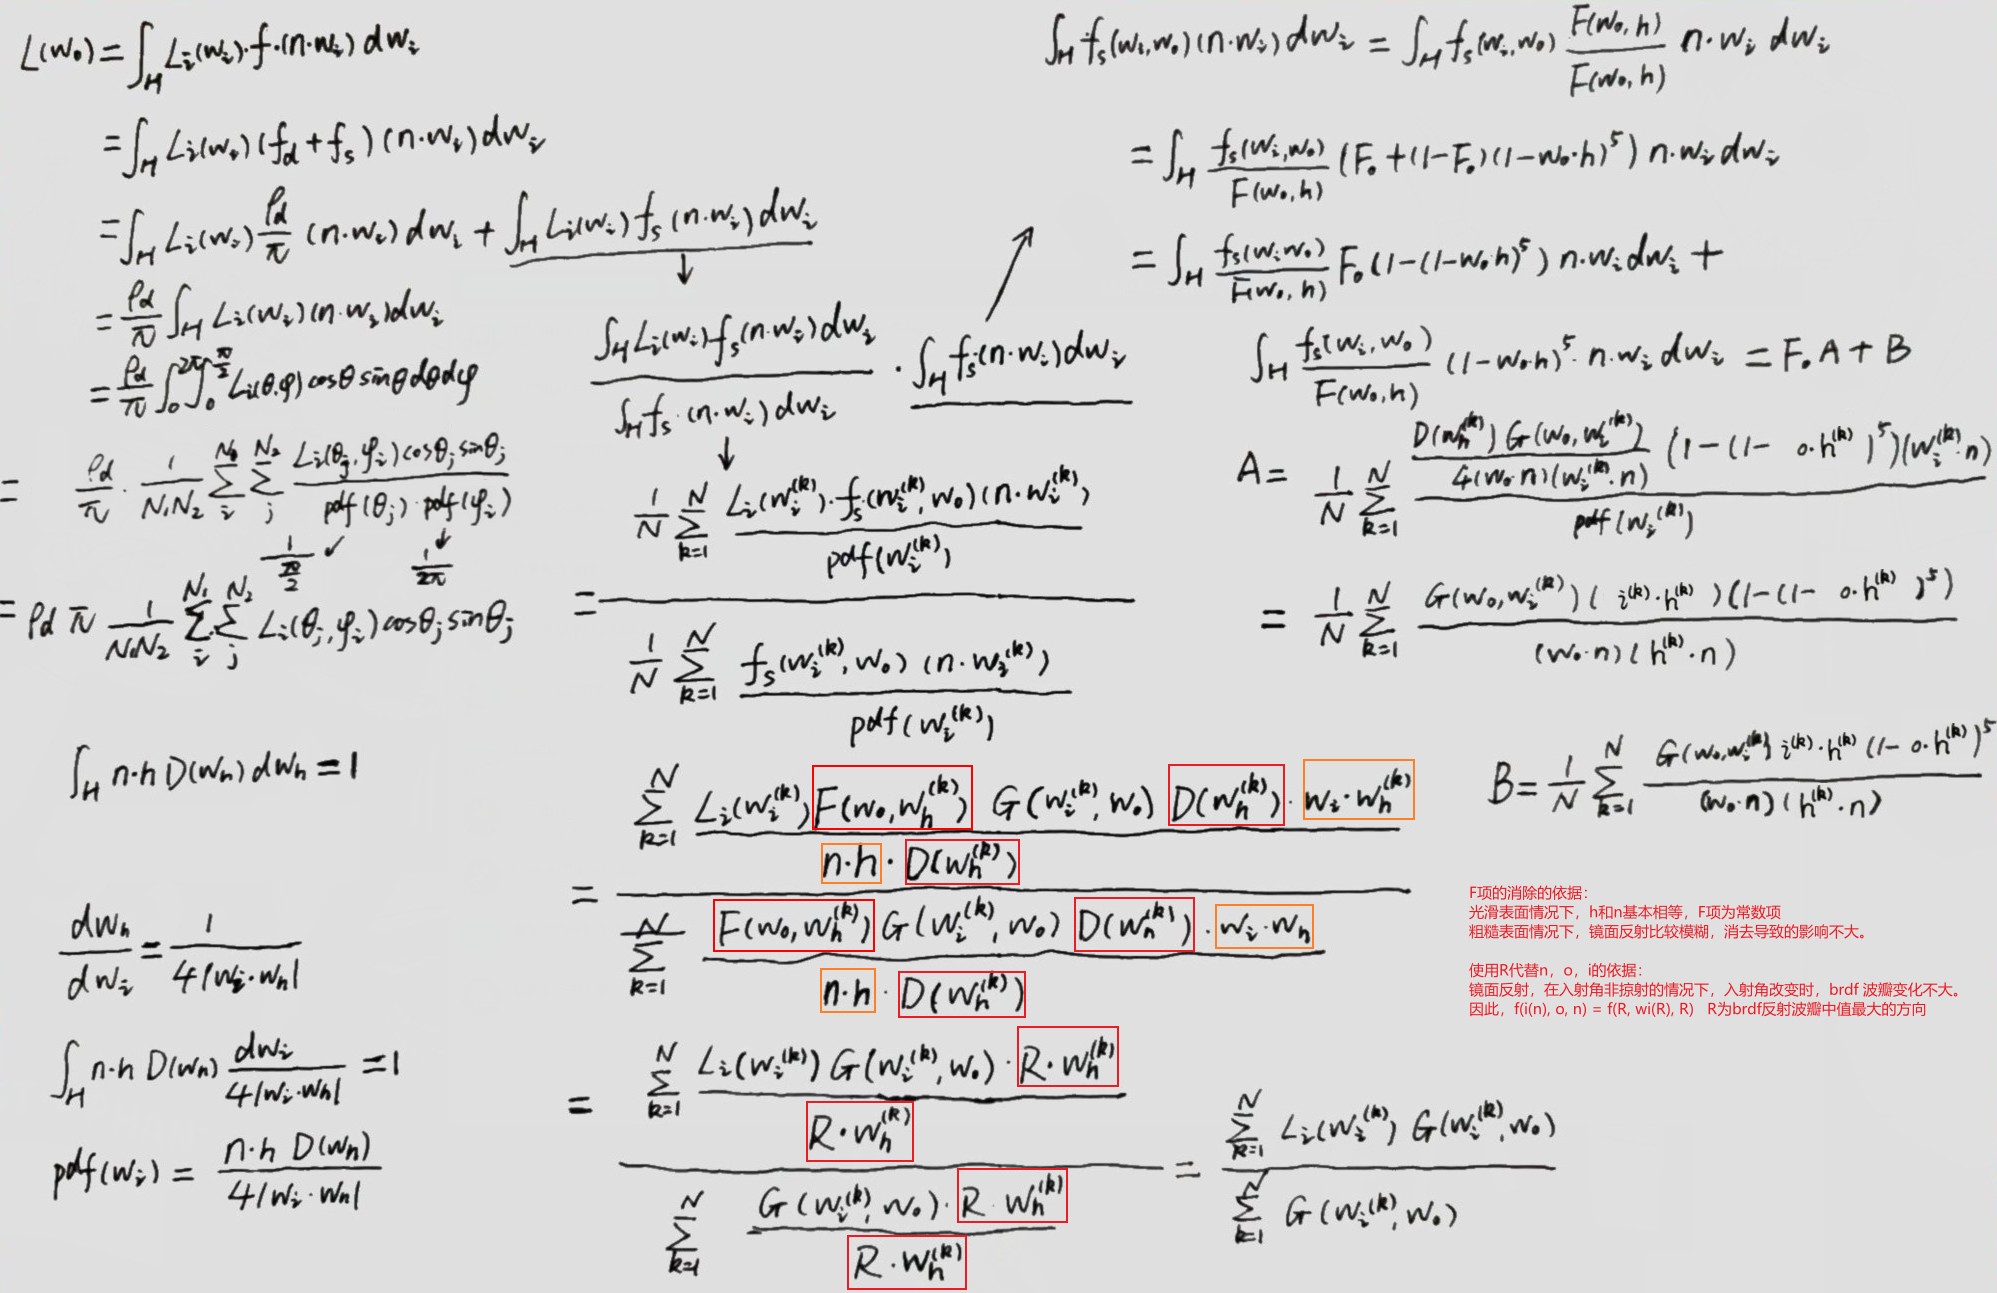 L(w₀) = ∫_H L_i(w_i)·f·(n·w_i) dw_i
= ∫_H L_i(w_i) (f_d + f_s) (n·w_i) dw_i
= ∫_H L_i(w_i) ρ_d/π (n·w_i) dw_i + ∫_H L_i(w_i) f_s (n·w_i) dw_i
= ρ_d/π ∫_H L_i(w_i) (n·w_i) dw_i
= ρ_d/π ∫_0^{2π} ∫_0^{π/2} L_i(θ,φ) cosθ sinθ dθ dφ
= ρ_d/π · 1/(N₁N₂) Σ_i^{N₁} Σ_j^{N₂} L_i(θ_j,φ_i) cosθ_j sinθ_j / (pdf(θ_j)·pdf(φ_i))
1/(π/2) ↙ 1/(2π) ↓
= ρ_d π 1/(N₁N₂) Σ_i^{N₁} Σ_j^{N₂} L_i(θ_j,φ_i) cosθ_j sinθ_j
∫_H n·h D(w_h) dw_h = 1
dw_h/dw_i = 1/(4|w_i·w_h|)
∫_H n·h D(w_h) dw_i/(4|w_i·w_h|) = 1
pdf(w_i) = n·h D(w_h) / (4|w_i·w_h|)
↓
∫_H L_i(w_i) f_s (n·w_i) dw_i / ∫_H f_s·(n·w_i) dw_i · ∫_H f_s (n·w_i) dw_i ↗
↓
= [1/N Σ_{k=1}^N L_i(w_i^(k))·f_s(w_i^(k), w₀)(n·w_i^(k)) / pdf(w_i^(k))] / [1/N Σ_{k=1}^N f_s(w_i^(k), w₀) (n·w_i^(k)) / pdf(w_i^(k))]
= [Σ_{k=1}^N L_i(w_i^(k)) F(w₀, w_h^(k)) G(w_i^(k), w₀) D(w_h^(k)) · w_i·w_h^(k) / (n·h · D(w_h^(k)))] / [Σ_{k=1}^N F(w₀, w_h^(k)) G(w_i^(k), w₀) D(w_h^(k)) · w_i·w_h / (n·h · D(w_h^(k)))]
= [Σ_{k=1}^N L_i(w_i^(k)) G(w_i^(k), w₀) · R·w_h^(k) / (R·w_h^(k))] / [Σ_{k=1}^N G(w_i^(k), w₀) · R·w_h^(k) / (R·w_h^(k))] = [Σ_{k=1}^N L_i(w_i^(k)) G(w_i^(k), w₀)] / [Σ_{k=1}^N G(w_i^(k), w₀)]
∫_H f_s(w_i,w₀) (n·w_i) dw_i = ∫_H f_s(w_i,w₀) F(w₀,h)/F(w₀,h) n·w_i dw_i
= ∫_H f_s(w_i,w₀)/F(w₀,h) (F₀ + (1-F₀)(1-w₀·h)⁵) n·w_i dw_i
= ∫_H f_s(w_i w₀)/F(w₀,h) F₀ (1-(1-w₀·h)⁵) n·w_i dw_i +
∫_H f_s(w_i,w₀)/F(w₀,h) (1-w₀·h)⁵ · n·w_i dw_i = F₀A + B
A = 1/N Σ_{k=1}^N [D(w_h^(k)) G(w₀,w_i^(k)) / (4(w₀·n)(w_i^(k)·n)) (1-(1- o·h^(k))⁵)(w_i^(k)·n)] / pdf(w_i^(k))
= 1/N Σ_{k=1}^N G(w₀,w_i^(k)) (i^(k)·h^(k)) (1-(1- o·h^(k))⁵) / ((w₀·n)(h^(k)·n))
B = 1/N Σ_{k=1}^N G(w₀,w_i^(k)) i^(k)·h^(k) (1- o·h^(k))⁵ / ((w₀·n)(h^(k)·n))
F项的消除的依据：
光滑表面情况下，h和n基本相等，F项为常数项
粗糙表面情况下，镜面反射比较模糊，消去导致的影响不大。
使用R代替n，o，i的依据：
镜面反射，在入射角非掠射的情况下，入射角改变时，brdf 波瓣变化不大。
因此，f(i(n), o, n) = f(R, wi(R), R) R为brdf反射波瓣中值最大的方向